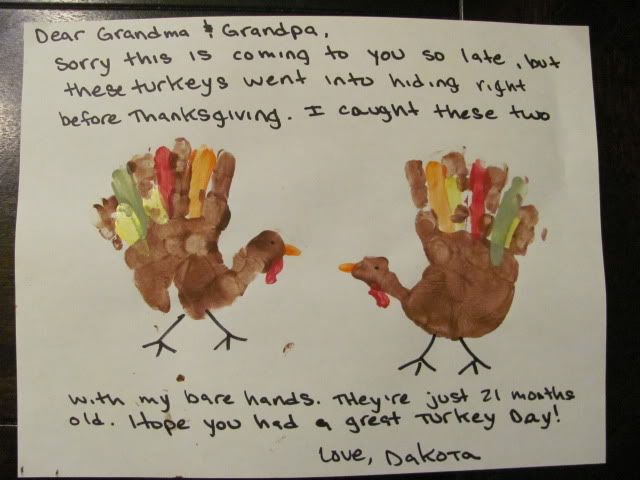 Dear Grandma & Grandpa,
Sorry this is coming to you so late, but
these turkeys went into hiding right
before Thanksgiving. I caught these two
with my bare hands. They're just 21 months
old. Hope you had a great Turkey Day!
Love, Dakota